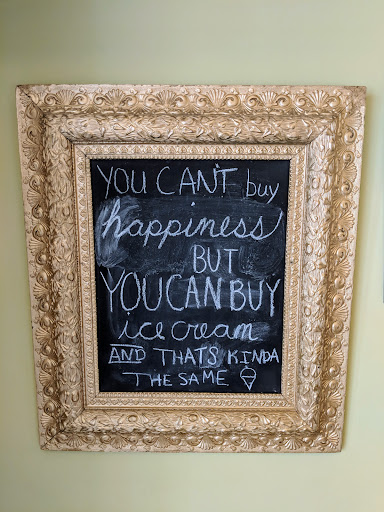 YOU CAN'T buy
happiness
BUT
YOU CAN BUY
ice cream
AND THATS KINDA
THE SAME